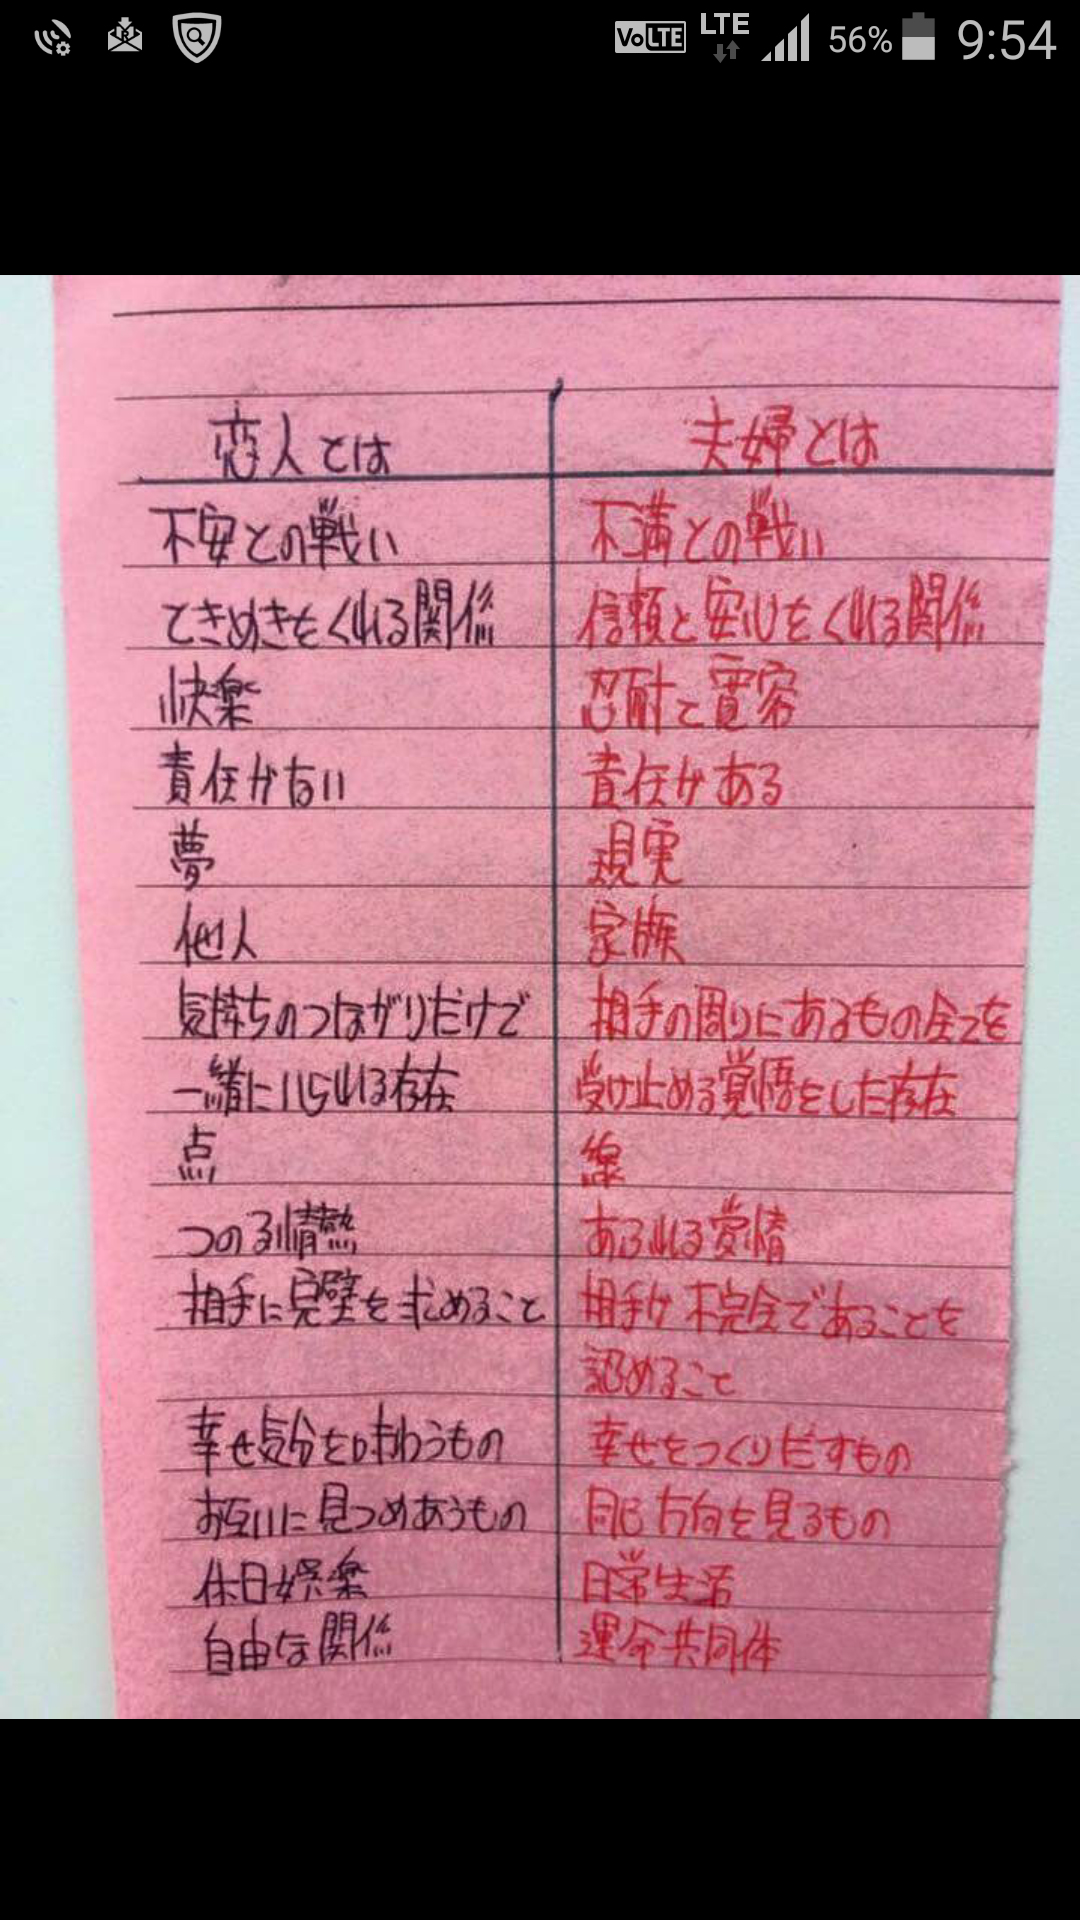 VoLTE LTE 56% 9:54
恋人とは 夫婦とは
不安との戦い 不満との戦い
ときめきをくれる関係 信頼と安心をくれる関係
快楽 忍耐と寛容
責任がない 責任がある
夢 現実
他人 家族
気持ちのつながりだけで 相手の周りにあるもの全てを
一緒にいられる存在 受け止める覚悟をした存在
点 線
つのる情熱 あふれる愛情
相手に完璧を求めること 相手は不完全であることを
認めること
幸せ気分を味わうもの 幸せをつくりだすもの
お互いに見つめあうもの 同じ方向を見るもの
休日娯楽 日常生活
自由な関係 運命共同体